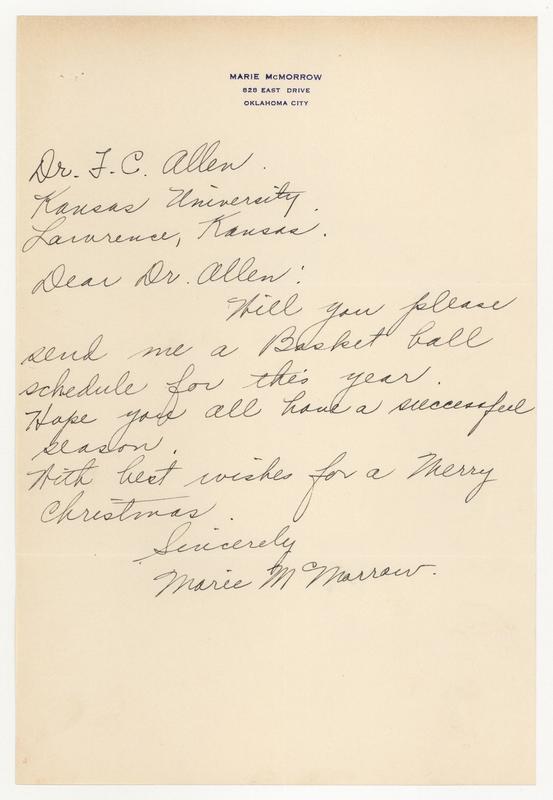 MARIE McMORROW
828 EAST DRIVE
OKLAHOMA CITY
Dr. F. C. Allen.
Kansas University.
Lawrence, Kansas.
Dear Dr. Allen:
Will you please
send me a Basket ball
schedule for this year.
Hope you all have a successful
season.
With best wishes for a Merry
Christmas.
Sincerely
Marie McMorrow.